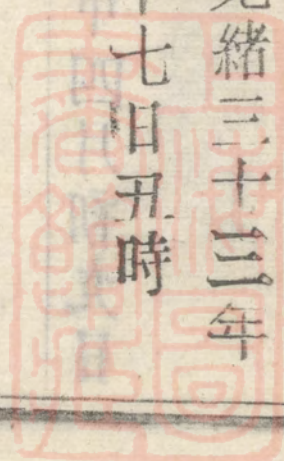 緒三十三年
七日丑時